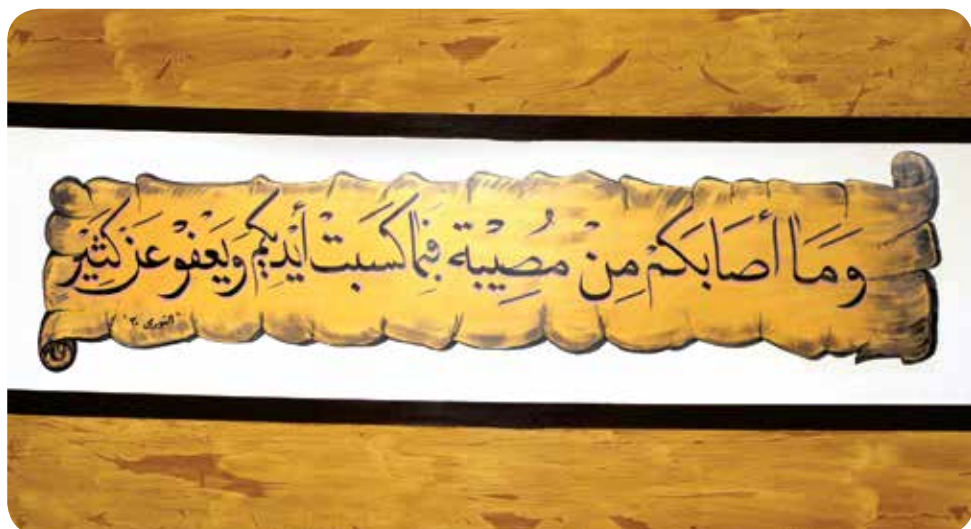 وَمَا أصَابَكُمْ مِنْ مُصِيبة فَبِمَا كسَبَتْ أيْدِيكُم وَيَعْفوْ عَنْ كَثِيْر
الشورى ٣٠